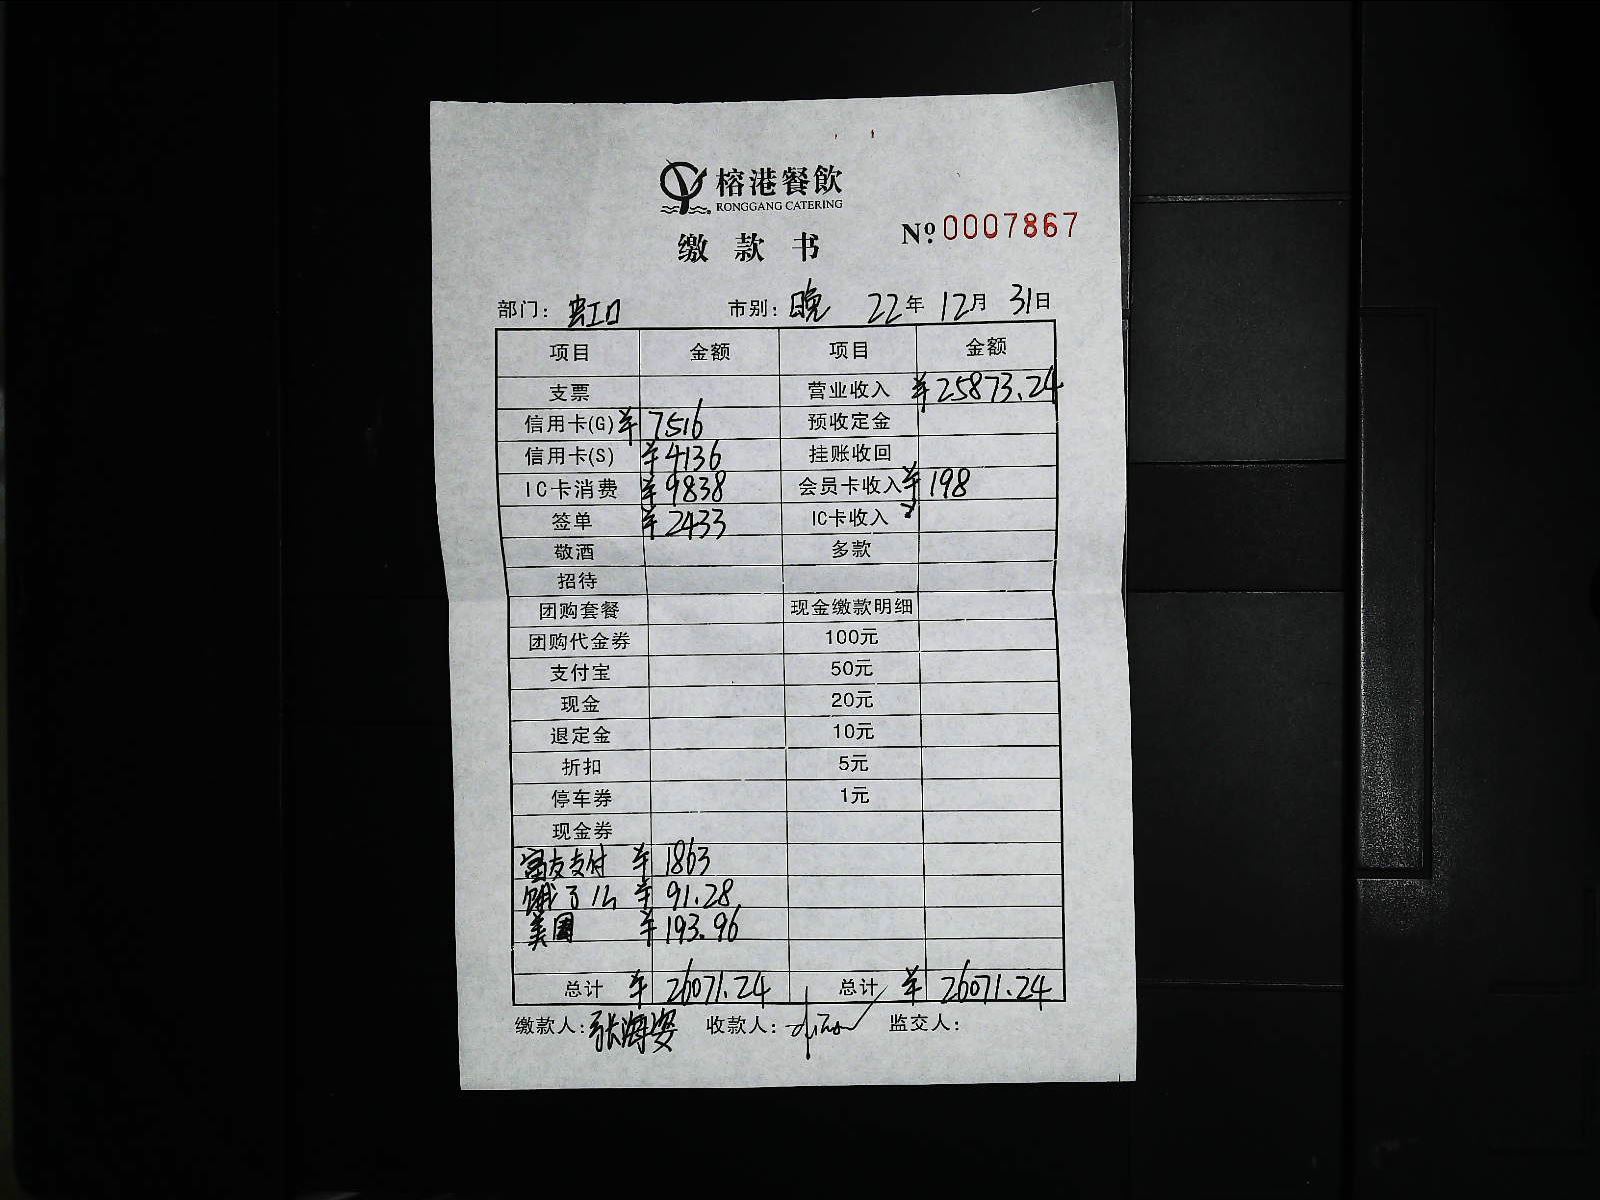 榕港餐飲
RONGGANG CATERING
缴款书
№ 0007867
部门: 虹口 市别: 晚 22年 12月 31日
项目 金额 项目 金额
支票 营业收入 ¥25873.24
信用卡(G) ¥7516 预收定金
信用卡(S) ¥4136 挂账收回
IC卡消费 ¥9838 会员卡收入 ¥198
签单 ¥2433 IC卡收入
敬酒 多款
招待
团购套餐 现金缴款明细
团购代金券 100元
支付宝 50元
现金 20元
退定金 10元
折扣 5元
停车券 1元
现金券
富友支付 ¥1863
饿了么 ¥91.28
美团 ¥193.96
总计 ¥26071.24 总计 ¥26071.24
缴款人: 张海 收款人: 监交人: